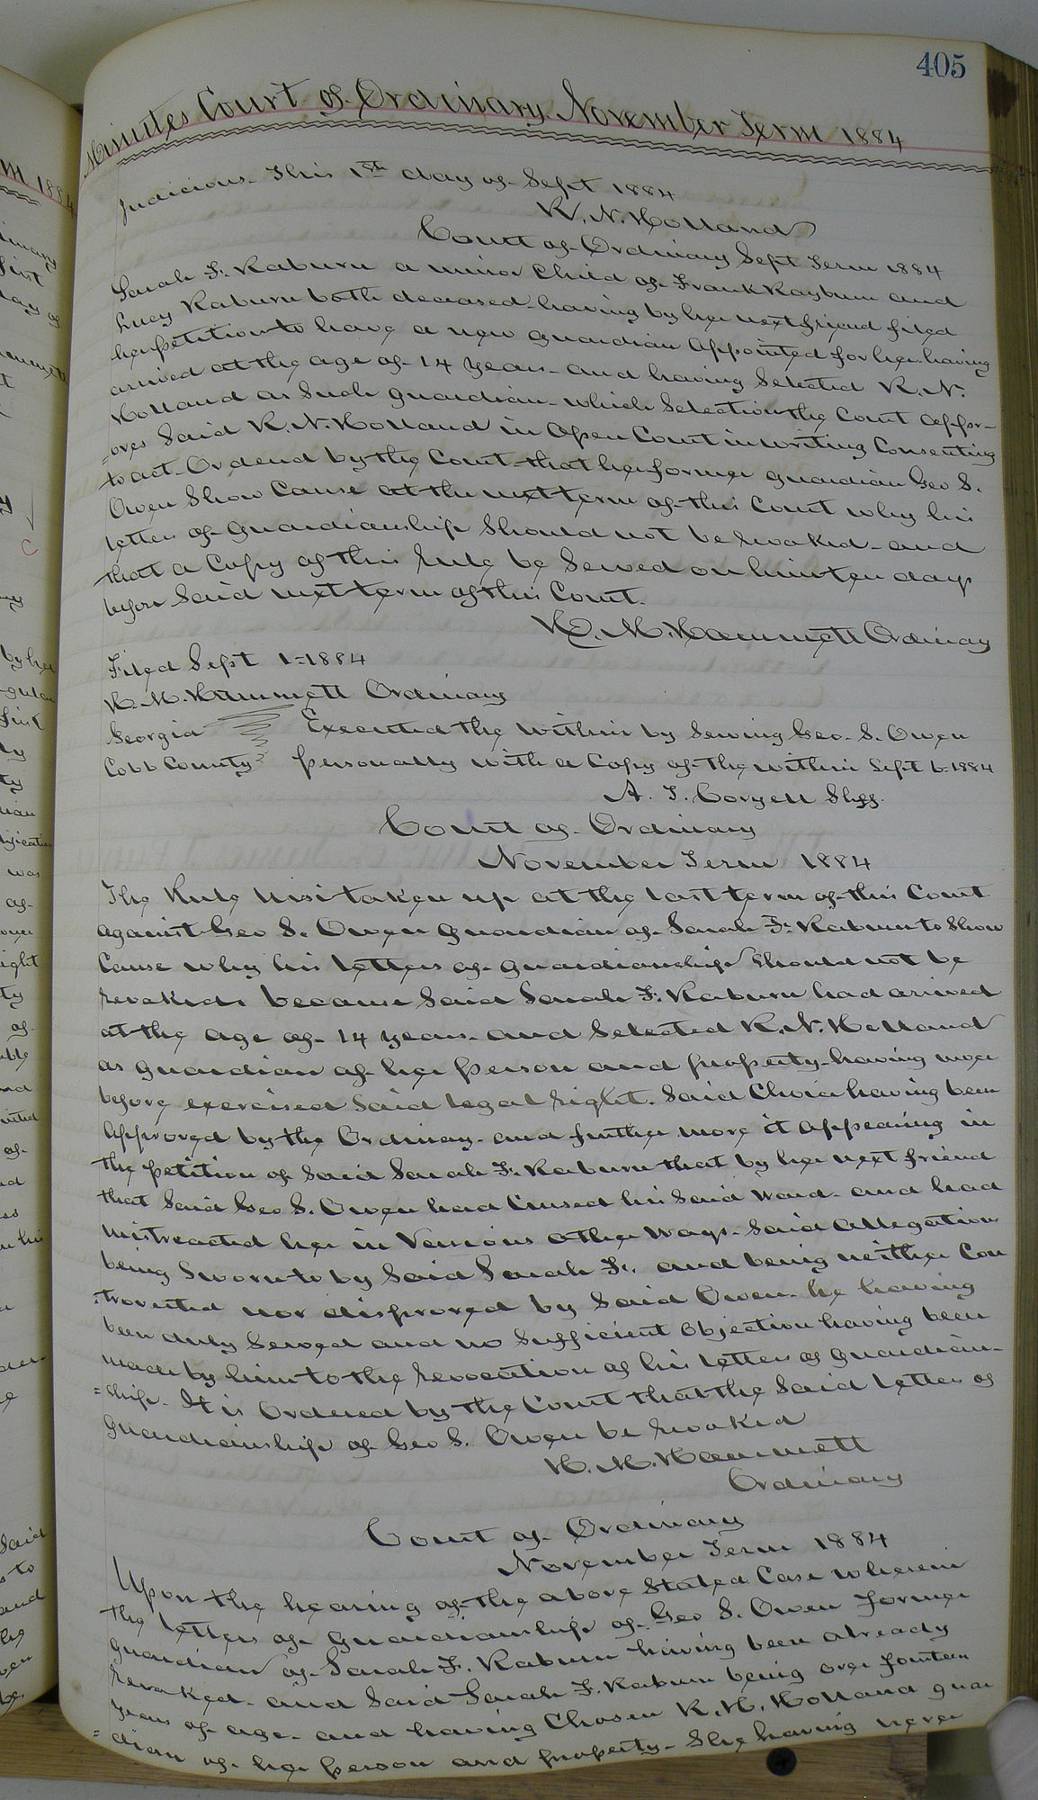 405
Minutes Court of Ordinary November Term 1884
Judicious. This 1st day of Sept 1884
R. N. Holland
Court of Ordinary Sept Term 1884
Sarah F. Raburn a minor Child of Frank Rayburn and
Lucy Raburn both deceased having by her next friend filed
her petition to have a new guardian appointed for her having
arrived at the age of 14 years and having Selected R. N.
Holland as Such guardian which Selection the Court appr-
=oves Said R. N. Holland in Open Court in writing Consenting
to act. Ordered by the Court that her former guardian Geo S.
Owen Show Cause at the next term of this Court why his
letters of guardianship Should not be revoked and
that a Copy of this Rule be Served on him ten days
before Said next term of this Court.
H. M. Hammett Ordinary
Filed Sept 1=1884
H. M. Hammett Ordinary
Georgia Executed the within by Serving Geo. S. Owen
Cobb County personally with a Copy of the within Sept 6 1884
A. J. Coryell Shff.
Court of Ordinary
November Term 1884
The Rule Nisi taken up at the last term of this Court
against Geo S. Owen guardian of Sarah F. Raburn to Show
Cause why his letters of guardianship Should not be
revoked because Said Sarah F. Raburn had arived
at the age of 14 years and Selected R. N. Holland
as guardian of her person and property having never
before exercised Said legal right. Said Choice having been
Approved by the Ordinary and further more it appearing in
the petition of Said Sarah F. Raburn that by her next friend
that Said Geo S. Owen had Cursed his Said ward and had
mistreated her in Various other ways. Said allegations
being Sworn to by Said Sarah F. and being neither Con
troverted nor disproved by Said Owen he having
been duly Served and no Sufficient Objection having been
made by him to the revocation of his letters of guardian-
=ship. It is Ordered by the Court that the Said letters of
guardianship of Geo S. Owen be revoked
H. M. Hammett
Ordinary
Court of Ordinary
November Term 1884
Upon the hearing of the above Stated Case wherein
the letters of guardianship of Geo S. Owen former
guardian of Sarah F. Raburn having been already
revoked and Said Sarah F. Raburn being over fourteen
years of age and having Chosen R. N. Holland guar
=dian of her person and property She having never